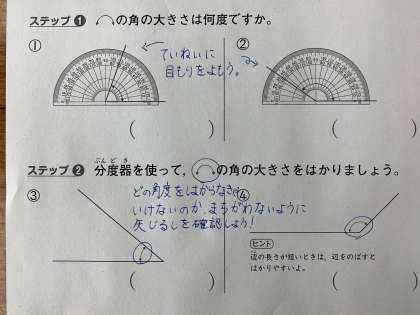 ステップ1 ⌒の角の大きさは何度ですか。
①
②
ていねいに
目もりをよもう。
( )
( )
ぶんどき
ステップ2 分度器を使って，⌒の角の大きさをはかりましょう。
③
④
どの角度をはからなきゃ
いけないのか、まちがわないように
矢じるしを確認しよう!
ヒント
辺の長さが短いときは，辺をのばすと
はかりやすいよ。
( )
( )